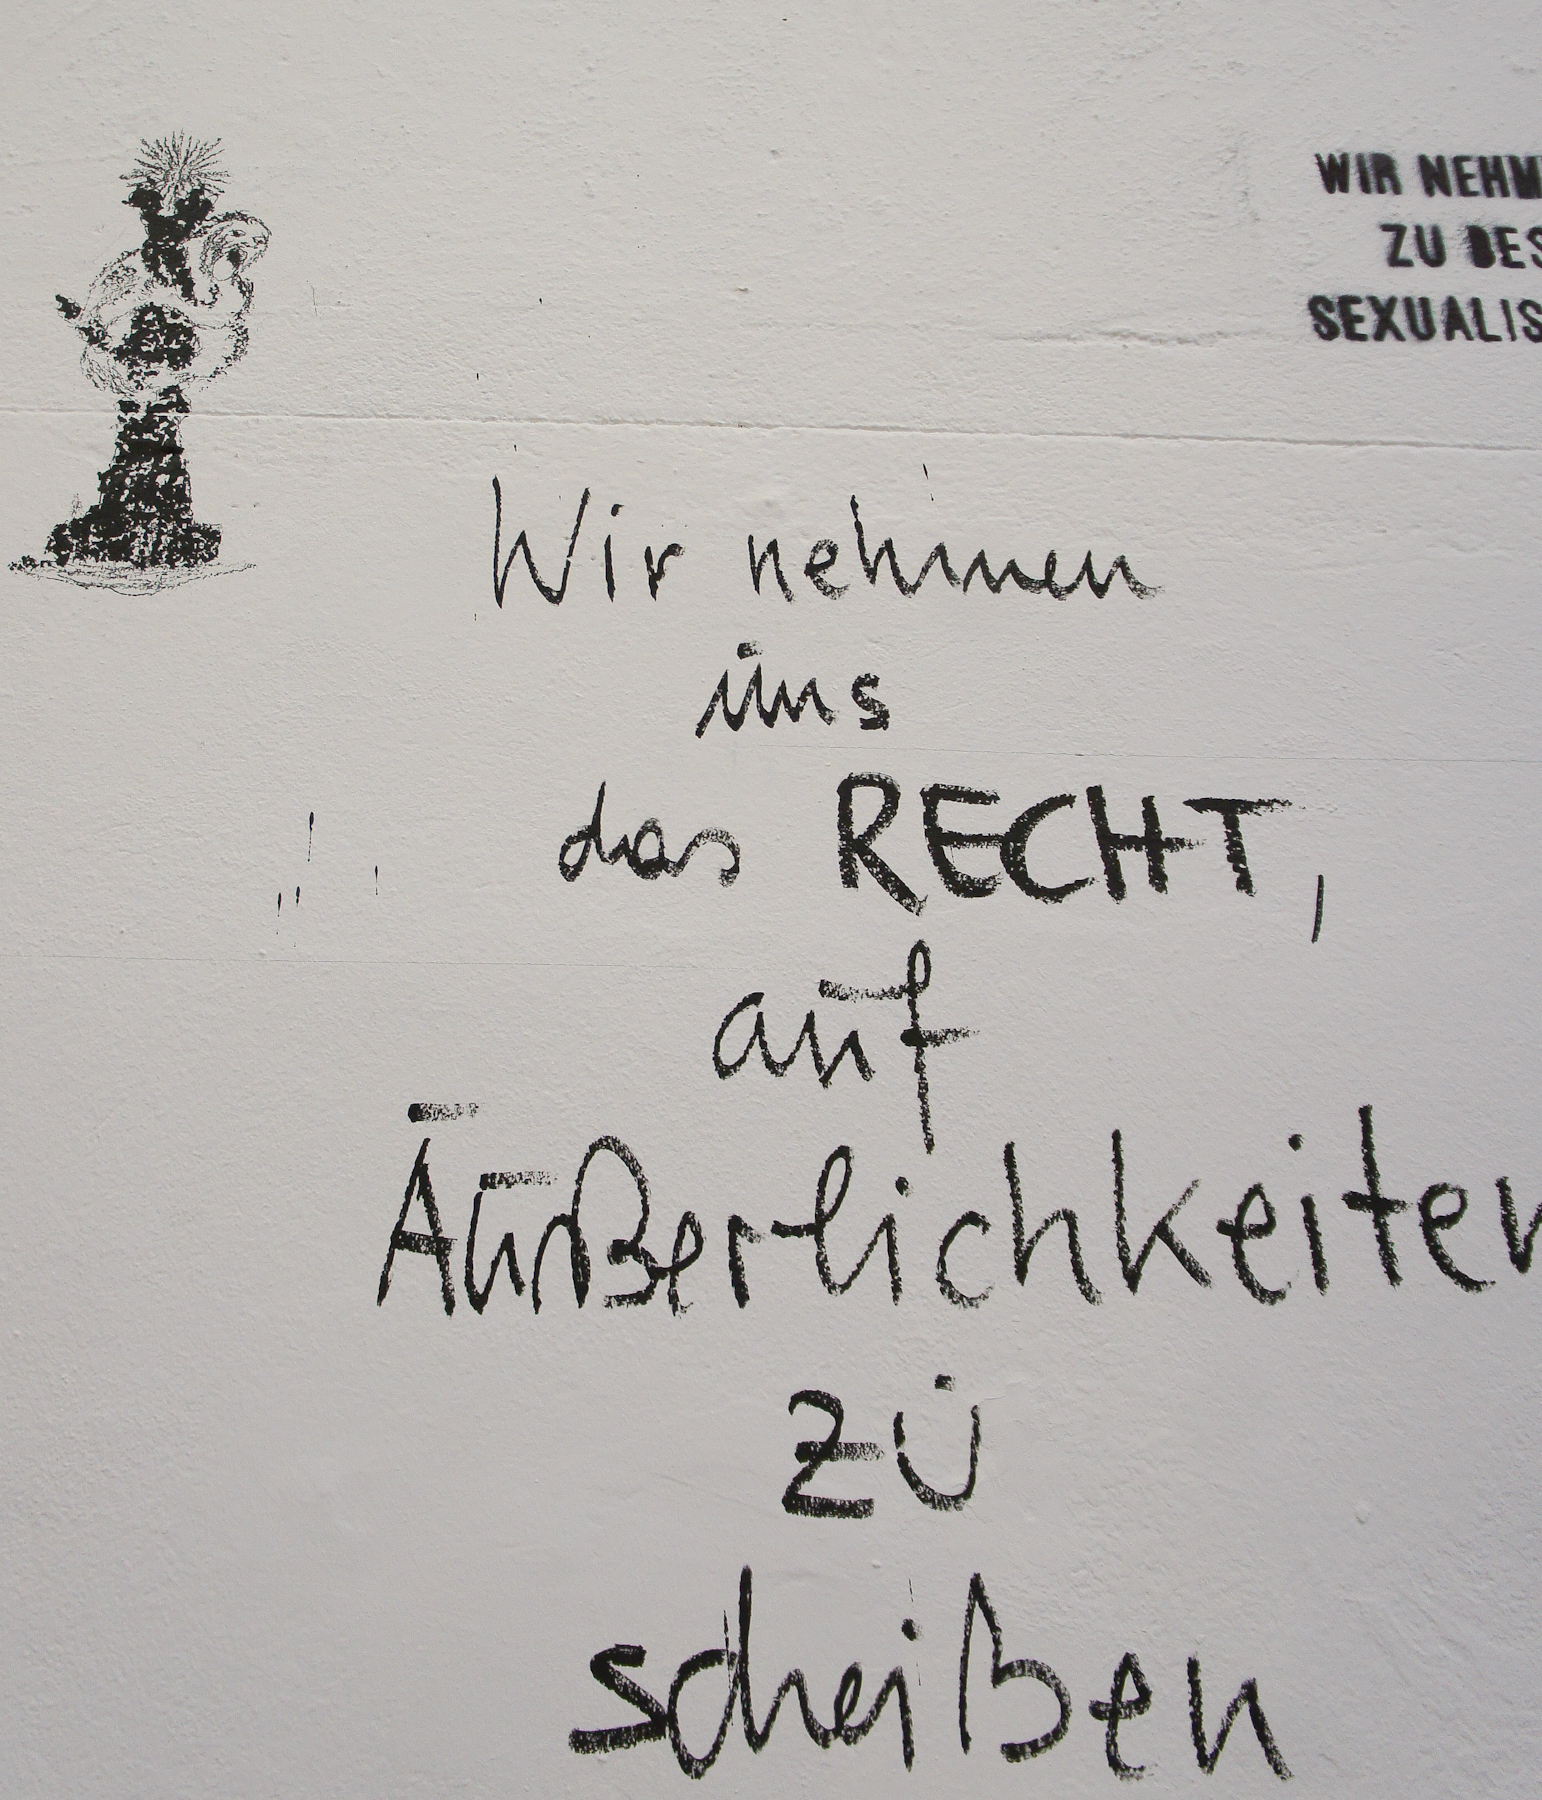 WIR NEHM
ZU BES
SEXUALIS
Wir nehmen
uns
das RECHT,
auf
Äußerlichkeiten
zu
scheißen